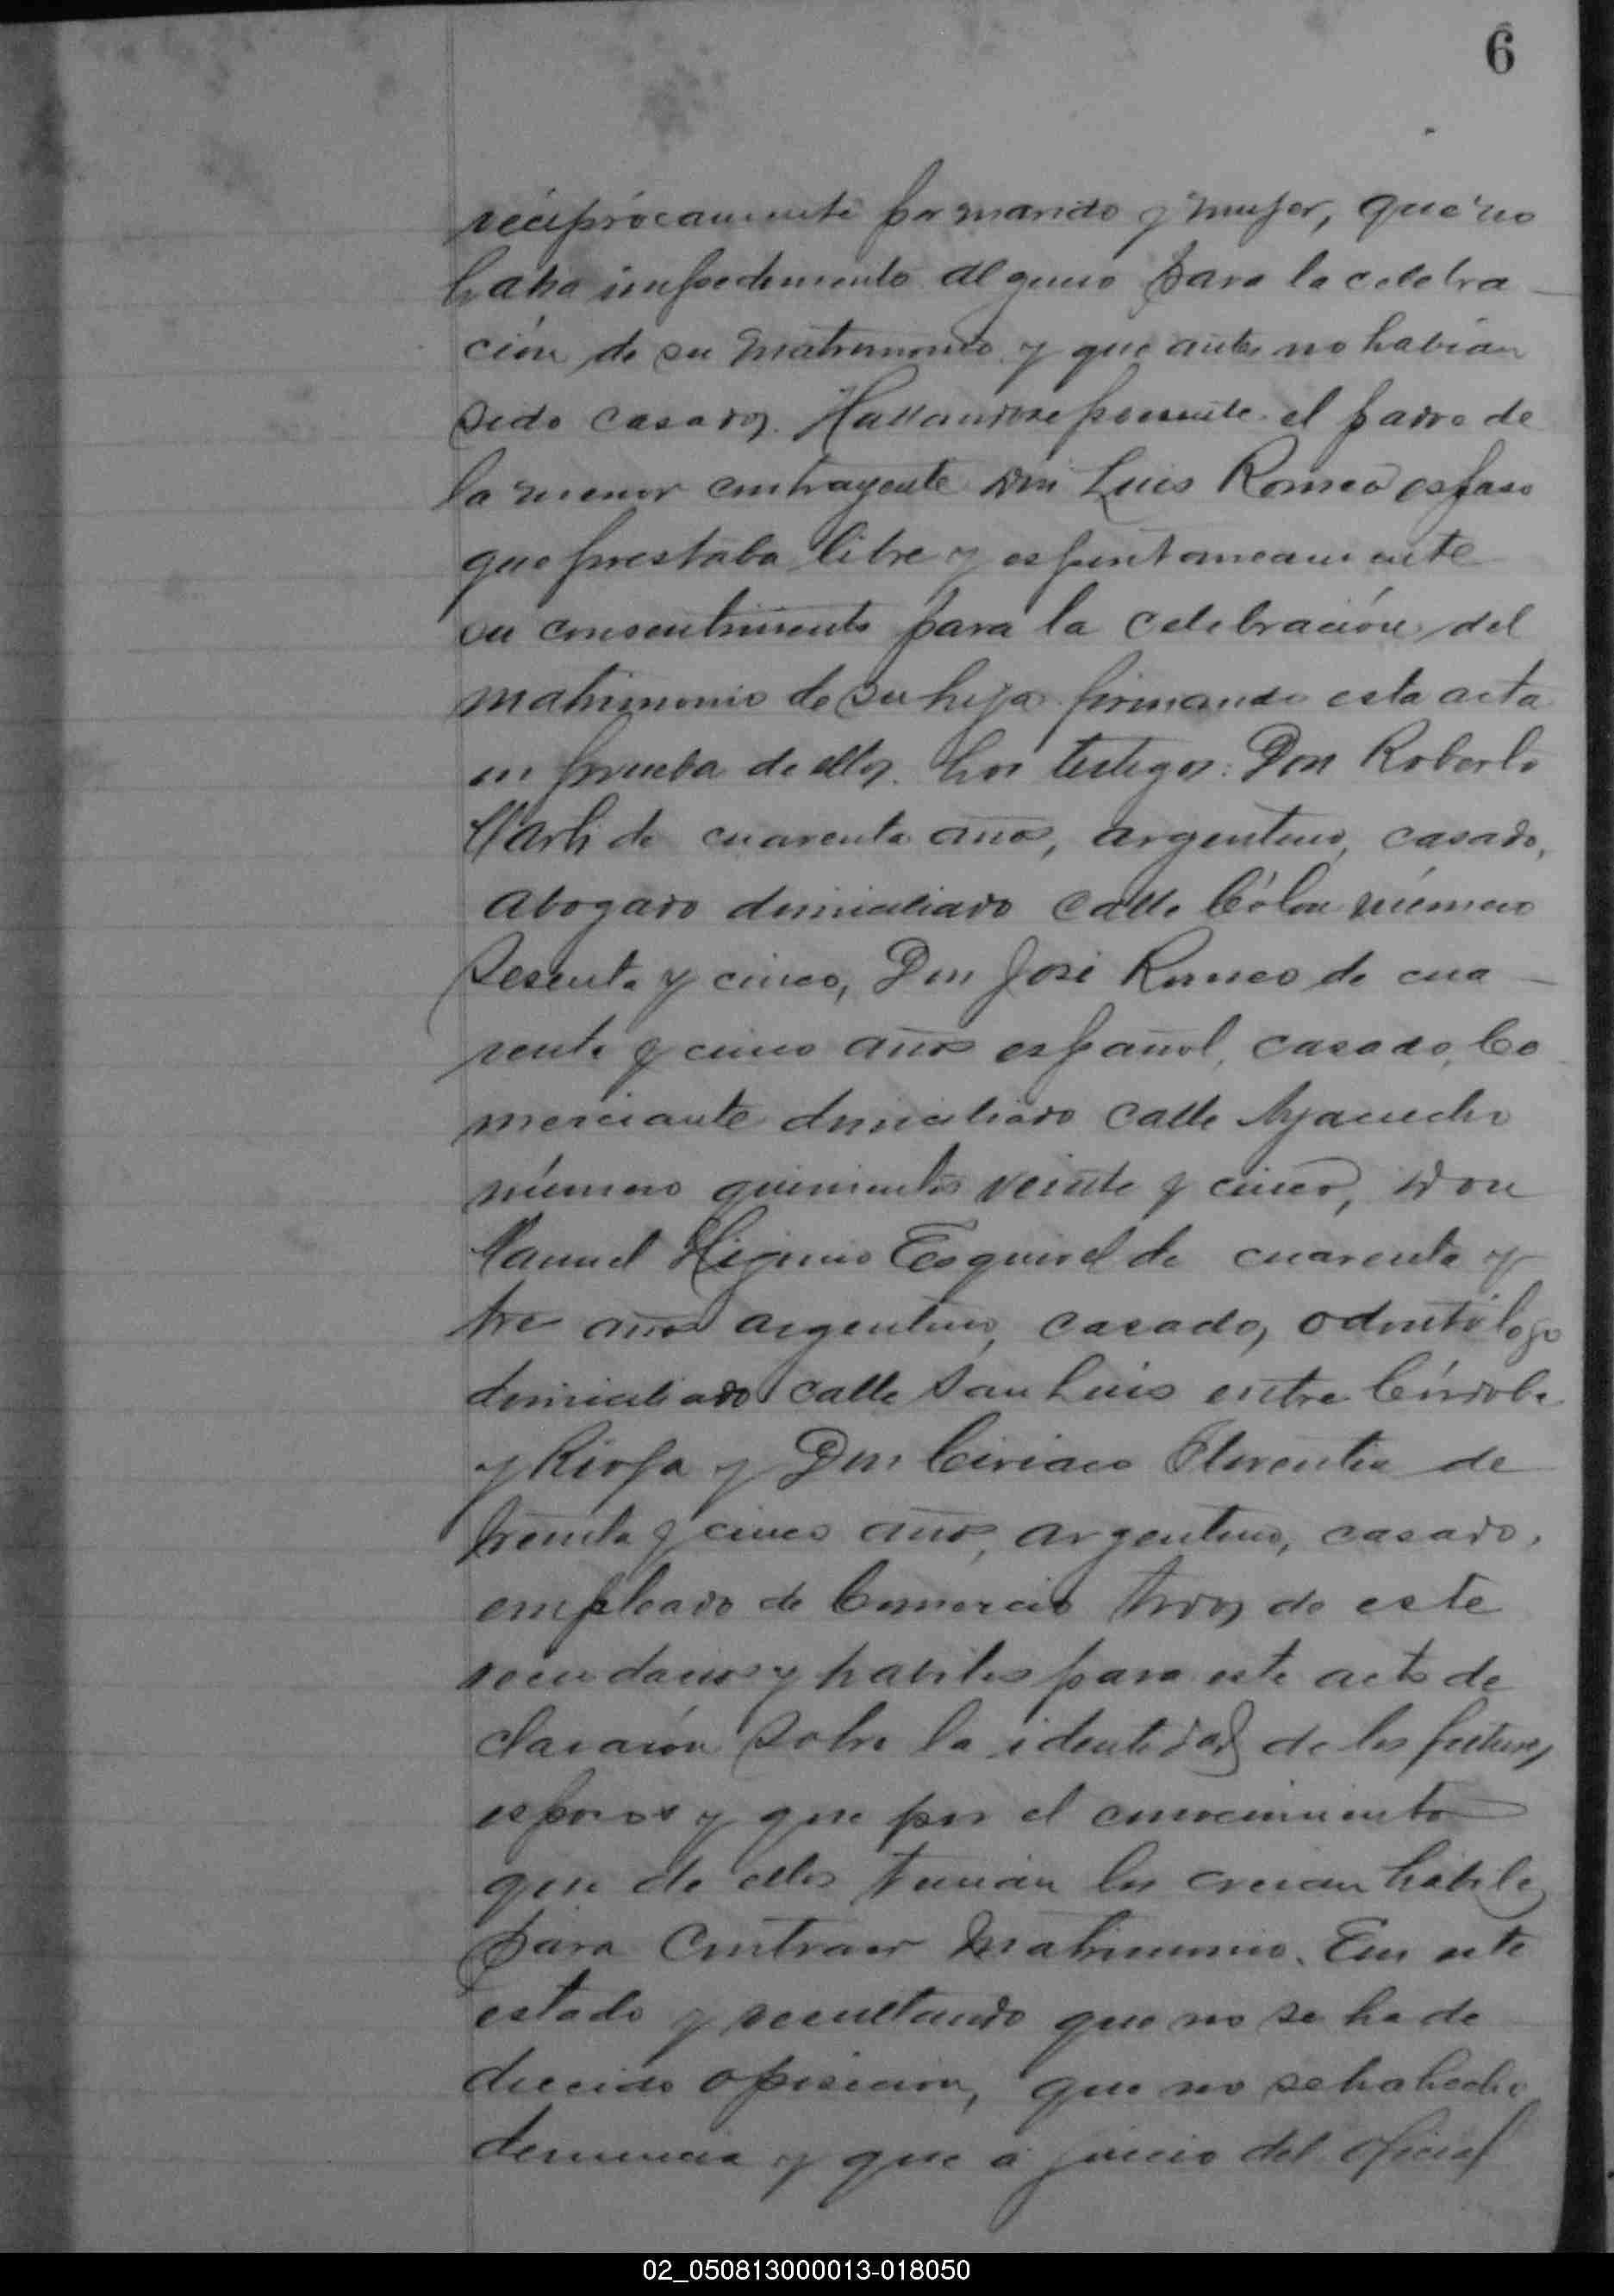 6
recíprocamente por marido y mujer, que no
había impedimento alguno para la celebra-
ción de su matrimonio y que antes no habían
sido casados. Hallandose presente el padre de
la menor contrayente Don Luis Romeo espuso
que prestaba libre y espontaneamente
su consentimiento para la celebración del
matrimonio de su hija firmando esta acta
en prueba de ello. Los testigos: Don Roberto
Marti de cuarenta años, argentino, casado,
abogado domiciliado calle Cólon número
sesenta y cinco, Don José Romeo de cua-
renta y cinco años español, casado, Co
merciante domiciliado calle Ayacucho
número quinientos veinte y cinco, Don
Manuel Higinio Esquivel de cuarenta y
tres años argentino, casado, odontólogo
domiciliado calle San Luis entre Córdoba
y Rioja y Don Ciriaco Florentin de
treinta y cinco años, argentino, casado,
empleado de Comercio todos de este
vecindario y habiles para este acto de
clararon sobre la identidad de los futuros
esposos y que por el conocimiento
que de ellos tenian los creian habiles
para contraer matrimonio. En este
estado y resultando que no se ha de
ducido oposicion, que no se ha hecho
denuncia y que a juicio del oficial
02_050813000013-018050